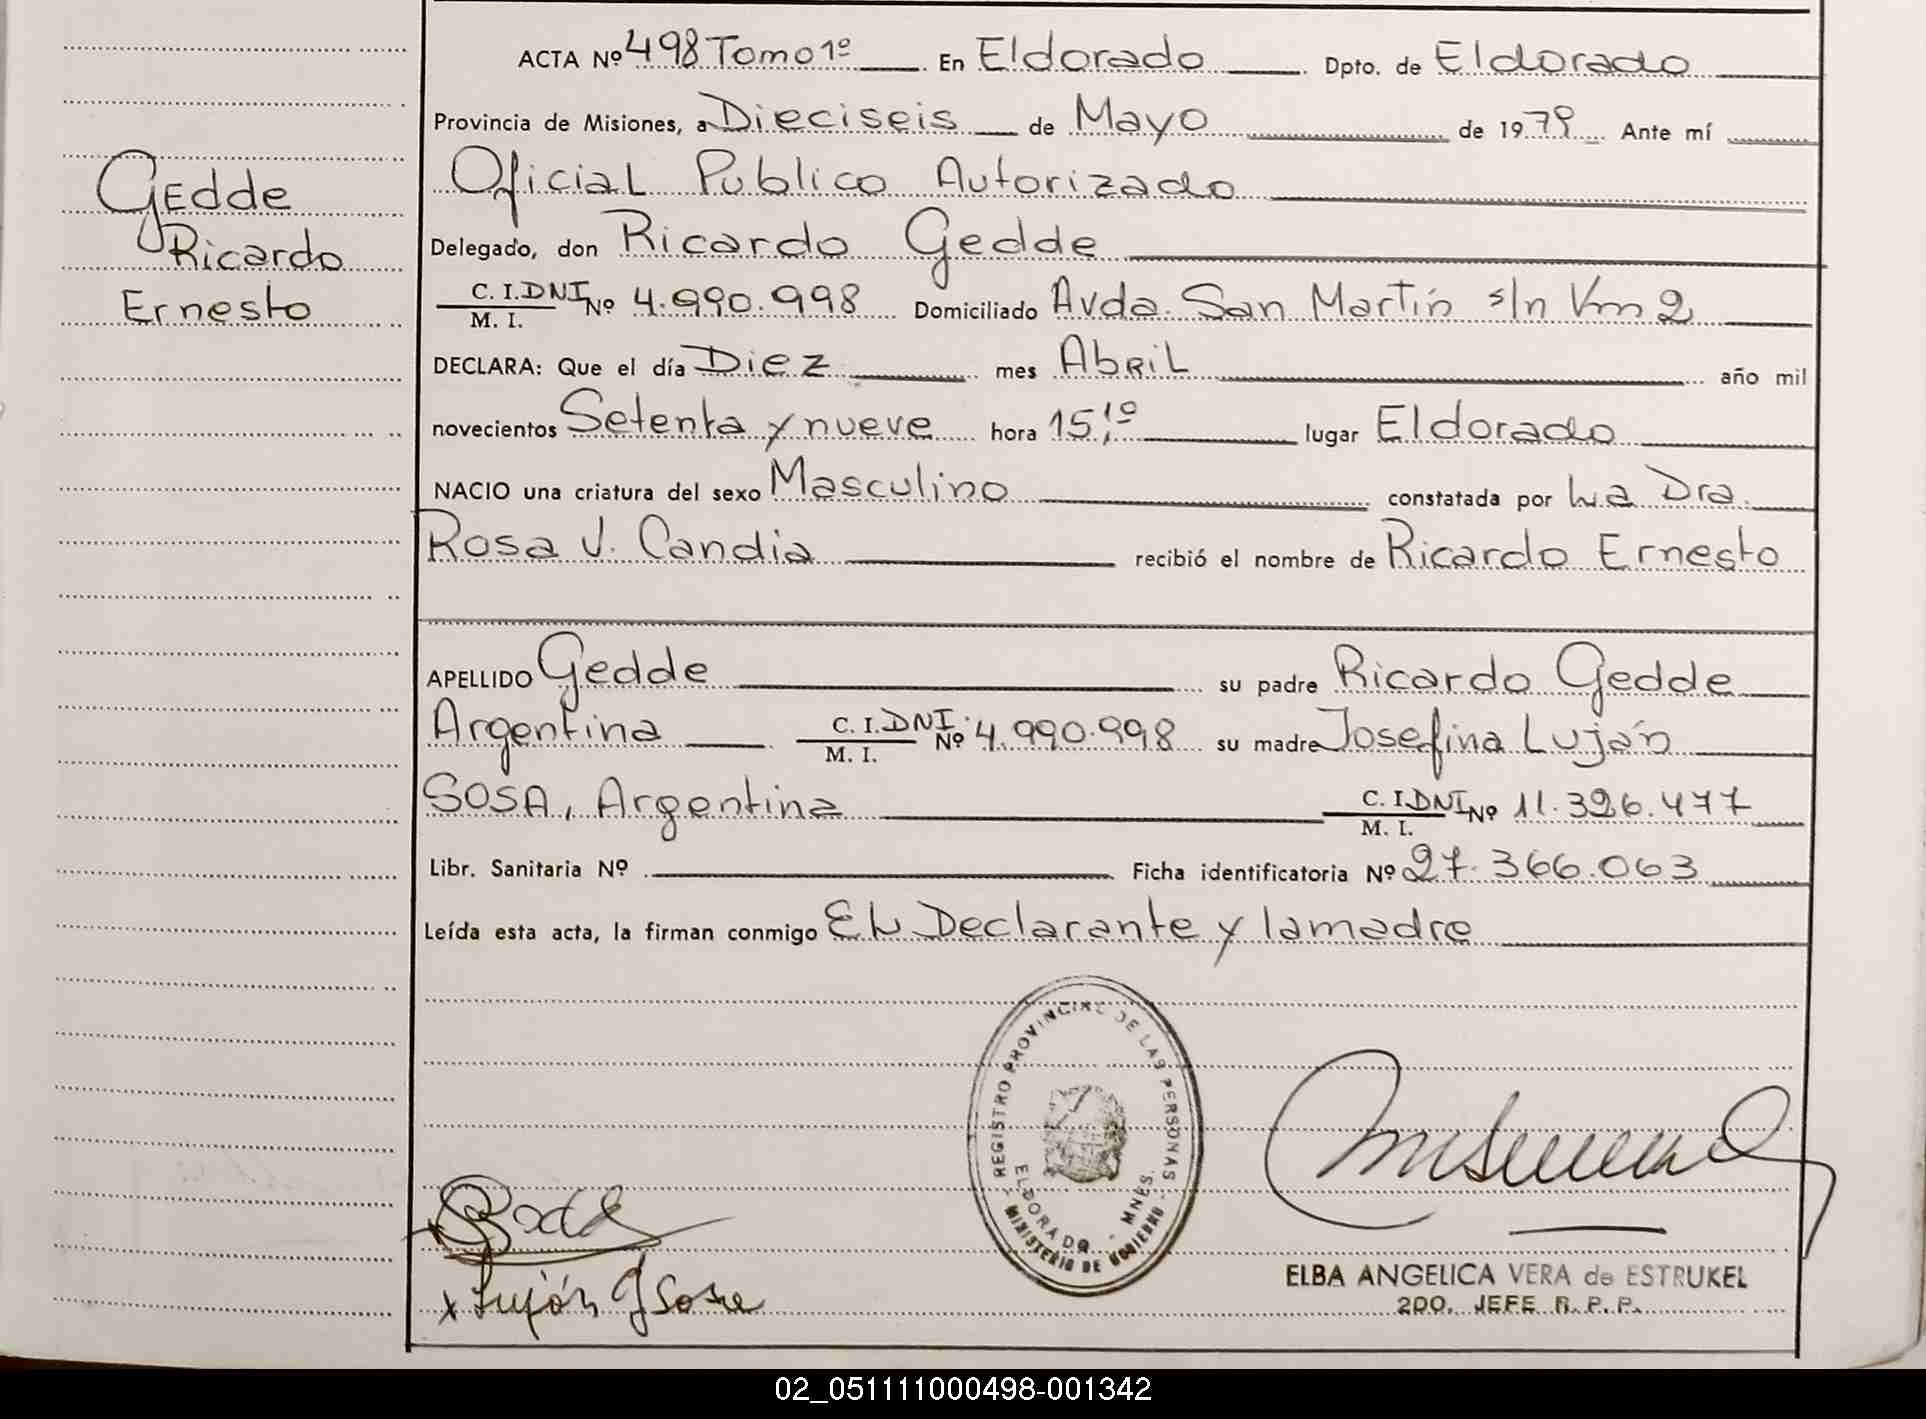 Gedde
Ricardo
Ernesto
ACTA Nº 498 Tomo 1º En Eldorado Dpto. de Eldorado
Provincia de Misiones, a Dieciseis de Mayo de 1979 Ante mí
Oficial Publico Autorizado
Delegado, don Ricardo Gedde
C. I. DNI Nº 4.990.998 Domiciliado Avda. San Martín s/n Km 2
M. I.
DECLARA: Que el día Diez mes Abril año mil
novecientos Setenta y nueve hora 15,10 lugar Eldorado
NACIO una criatura del sexo Masculino constatada por La Dra.
Rosa V. Candia recibió el nombre de Ricardo Ernesto
APELLIDO Gedde su padre Ricardo Gedde
Argentina C. I. DNI. Nº 4.990.998 su madre Josefina Luján
SOSA, Argentina C. I. DNI Nº 11.396.477
M. I.
M. I.
Libr. Sanitaria Nº Ficha identificatoria Nº 27.366.063
Leída esta acta, la firman conmigo El Declarante y la madre
REGISTRO PROVINCIAL DE LAS PERSONAS
ELDORADO - MNES.
MINISTERIO DE GOBIERNO
x Luján J Sosa
ELBA ANGELICA VERA de ESTRUKEL
2DO. JEFE R. P. P.
02_051111000498-001342